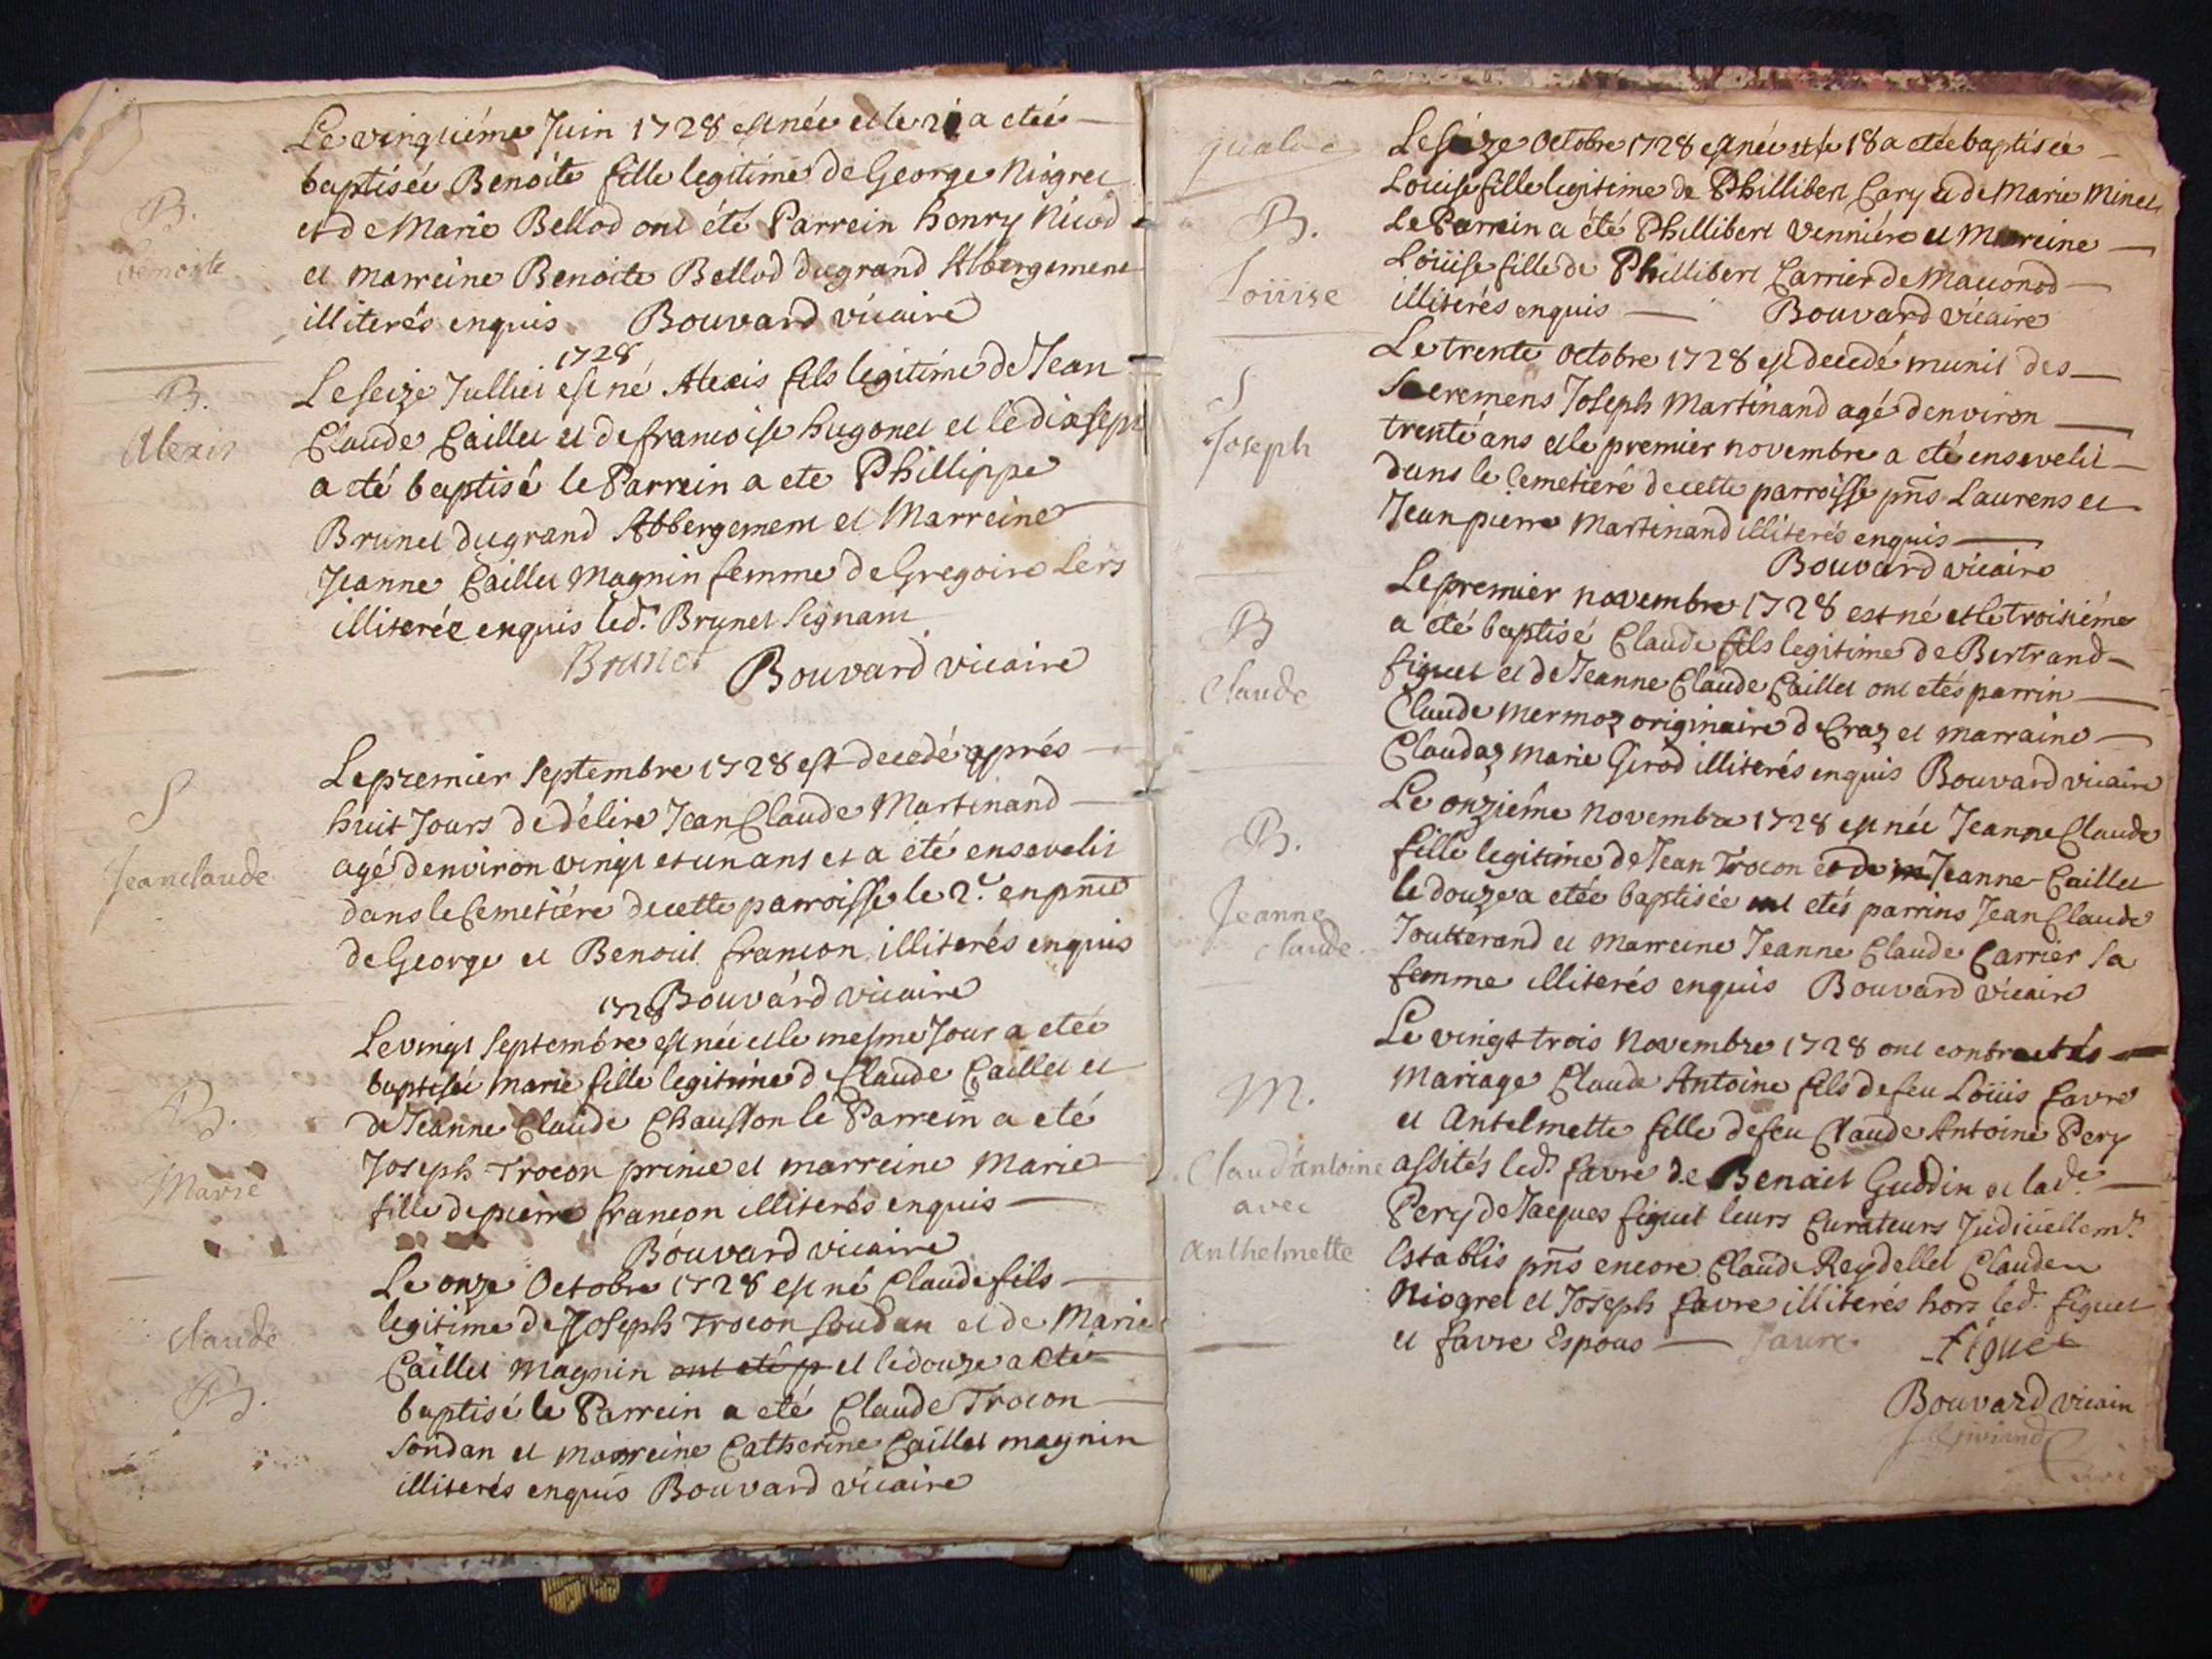 Le vingtiéme Juin 1728 est née et le 21 a etée
baptisée Benoite fille legitime de George Niogret
et de Marie Bellod ont été Parrein henry Nicod
B.
Benoite
et marreine Benoite Bellod du grand Abbergement
illiterés enquis Bouvard vicaire
1728
Le seize Julliet est né Alexis fils legitime de Jean
B.
Alexis
Claude Caillet et de francoise hugonet et le dixsept
a eté baptisé le Parrein a ete Phillippe
Brunet du grand Abbergement et Marreine
Jeanne Caillet Magnin femme de Gregoire Lers
illiterée enquis led. Brunet Signant
Brunet Bouvard vicaire
Le premier Septembre 1728 est decedé apprés
S
Jeanclaude
huit Jours de délire Jean Claude Martinand
agé denviron vingt et un ans et a été ensevelit
dans le Cemetiére de cette parroisse le 2e en pnce
de George et Benoit francon illiterés enquis
Bouvard vicaire
1728
Le vingt Septembre est née et le mesme Jour a etée
baptisée marie fille legitime d Claude Caillet et
B.
Marie
de Jeanne Claude Chausson le Parrein a eté
Joseph Trocon prince et marreine Marie
fille de pierre francon illiterés enquis
Bouvard vicaire
Le onze Octobre 1728 est né Claude fils
claude
B.
legitime de Joseph Trocon Soudan et de Marie
Caillet Magnin ont eté p et le douze a eté
baptisé le Parrein a eté Claude Trocon
Sondan et marreine Catherine Caillet magnin
illiterés enquis Bouvard vicaire
Le Seize Octobre 1728 est née et le 18 a etée baptisée
Louise fille legitime de Phillibert Cary et de Marie Minet
B.
Loüise
Le Parrein a été Phillibert Vennière et Marreine
Loüise fille de Phillibert Carrier de Mauonod
illiterés enquis Bouvard vicaire
Le trente Octobre 1728 est decedé munit des
S
Joseph
Sacremens Joseph Martinand agé denviron
trente ans et le premier novembre a eté ensevelit
dans le Cemetiére de cette parroisse pns Laurens et
Jean pierre Martinand illiterés enquis
Bouvard vicaire
Le premier novembre 1728 est né et le troisiéme
B
Claude
a été baptisé Claude fils legitime de Bertrand
figuet et de Jeanne Claude Caillet ont etés parrin
Claude mermoz originaire d Craz et marraine
Claudaz marie Girod illiterés enquis Bouvard vicaire
Le onziéme Novembre 1728 est née Jeanne Claude
B.
Jeanne
claude.
fille legitime de Jean Trocon et de Jeanne Caillet
le douze a etée baptisée ont etés parrins Jean Claude
Joutterand et marreine Jeanne Claude Carrier sa
femme illiterés enquis Bouvard vicaire
Le vingt trois Novembre 1728 ont contractés
M.
Claud'antoine
avec
Anthelmette
mariage Claude Antoine fils de feu Loüis favre
et Antelmette fille de feu Claude Antoine Pery
assités led. favre de Benait Guddin et lade.
Pery de Jacques figuet leurs Curateurs Judiciellemt.
Establis pns encore Claude Reydellet Claude
Niogret et Joseph favre illiterés hors led. figuet
et favre Espous favre figuet
Bouvard vicaire
Curé